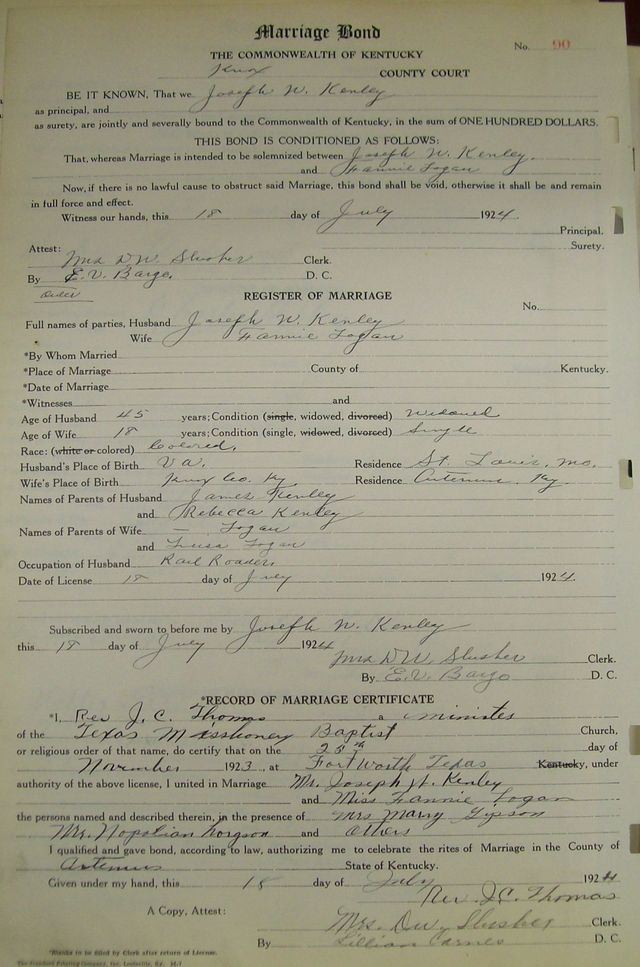 Marriage Bond
No. 90
THE COMMONWEALTH OF KENTUCKY
Knox COUNTY COURT
BE IT KNOWN, That we Joseph W. Kenley
as principal, and
as surety, are jointly and severally bound to the Commonwealth of Kentucky, in the sum of ONE HUNDRED DOLLARS.
THIS BOND IS CONDITIONED AS FOLLOWS:
That, whereas Marriage is intended to be solemnized between Joseph W. Kenley.
and Fannie Logan
Now, if there is no lawful cause to obstruct said Marriage, this bond shall be void, otherwise it shall be and remain
in full force and effect.
Witness our hands, this 18 day of July 1924.
Principal.
Surety.
Attest:
Mrs D W Slusher Clerk.
By E. V. Bargo. D. C.
Order
REGISTER OF MARRIAGE
No.
Full names of parties, Husband Joseph W. Kenley
Wife Fannie Logan
*By Whom Married
*Place of Marriage County of Kentucky.
*Date of Marriage
*Witnesses and
Age of Husband 45 years; Condition (single, widowed, divorced) Widowed
Age of Wife 18 years; Condition (single, widowed, divorced) Single
Race: (white or colored) Colored.
Husband's Place of Birth Va. Residence St. Louis, Mo.
Wife's Place of Birth Knox Co. Ky. Residence Artemus, Ky.
Names of Parents of Husband James Kenley
and Rebecca Kenley
Names of Parents of Wife — Logan
and Logan
Occupation of Husband Rail Roader.
Date of License 18 day of July 1924.
Subscribed and sworn to before me by Joseph W. Kenley
this 18 day of July 1924
Mrs D W Slusher Clerk.
By E. V. Bargo D. C.
*RECORD OF MARRIAGE CERTIFICATE
*I, Rev J. C. Thomas a minister
of the Texas Misshoney Baptist Church,
or religious order of that name, do certify that on the 25th day of
November 1923, at Fort Worth Texas Kentucky, under
authority of the above license, I united in Marriage Mr. Joseph W. Kenley
and Miss Fannie Logan
the persons named and described therein, in the presence of Mrs Marry Gipson
Mr. Nopolian and others
I qualified and gave bond, according to law, authorizing me to celebrate the rites of Marriage in the County of
Artemus State of Kentucky.
Given under my hand, this 18 day of July 1924
Rev. J. C. Thomas
A Copy, Attest:
Mrs. D W Slusher Clerk.
By Lillian Carnes D. C.
*Blanks to be filled by Clerk after return of License.
The Standard Printing Company, Inc. Louisville, Ky. M-1